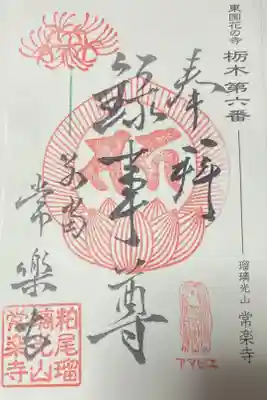 東国花の寺 栃木第六番
瑠璃光山 常楽寺
奉拝
録事尊
常樂寺
粕尾瑠
璃光山
常楽寺
アマビエ